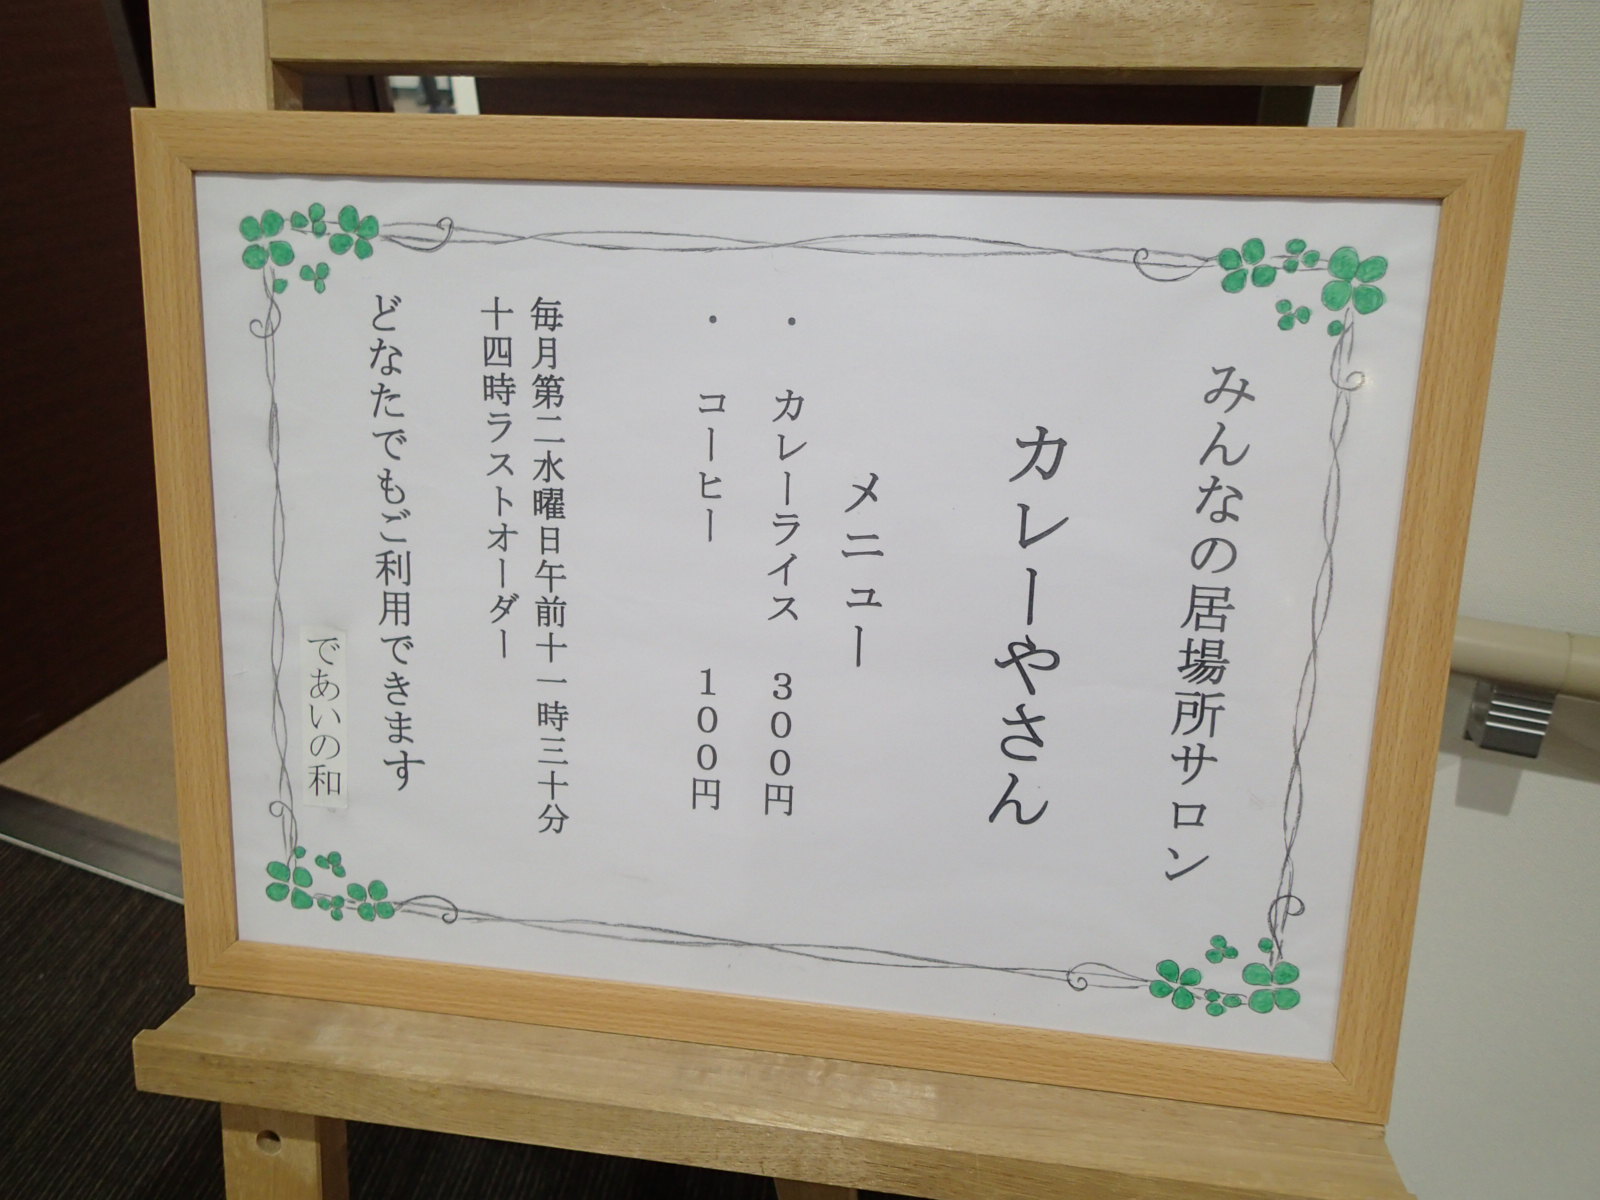 みんなの居場所サロン
カレーやさん
メニュー
・ カレーライス 300円
・ コーヒー 100円
毎月第二水曜日午前十一時三十分
十四時ラストオーダー
どなたでもご利用できます
であいの和